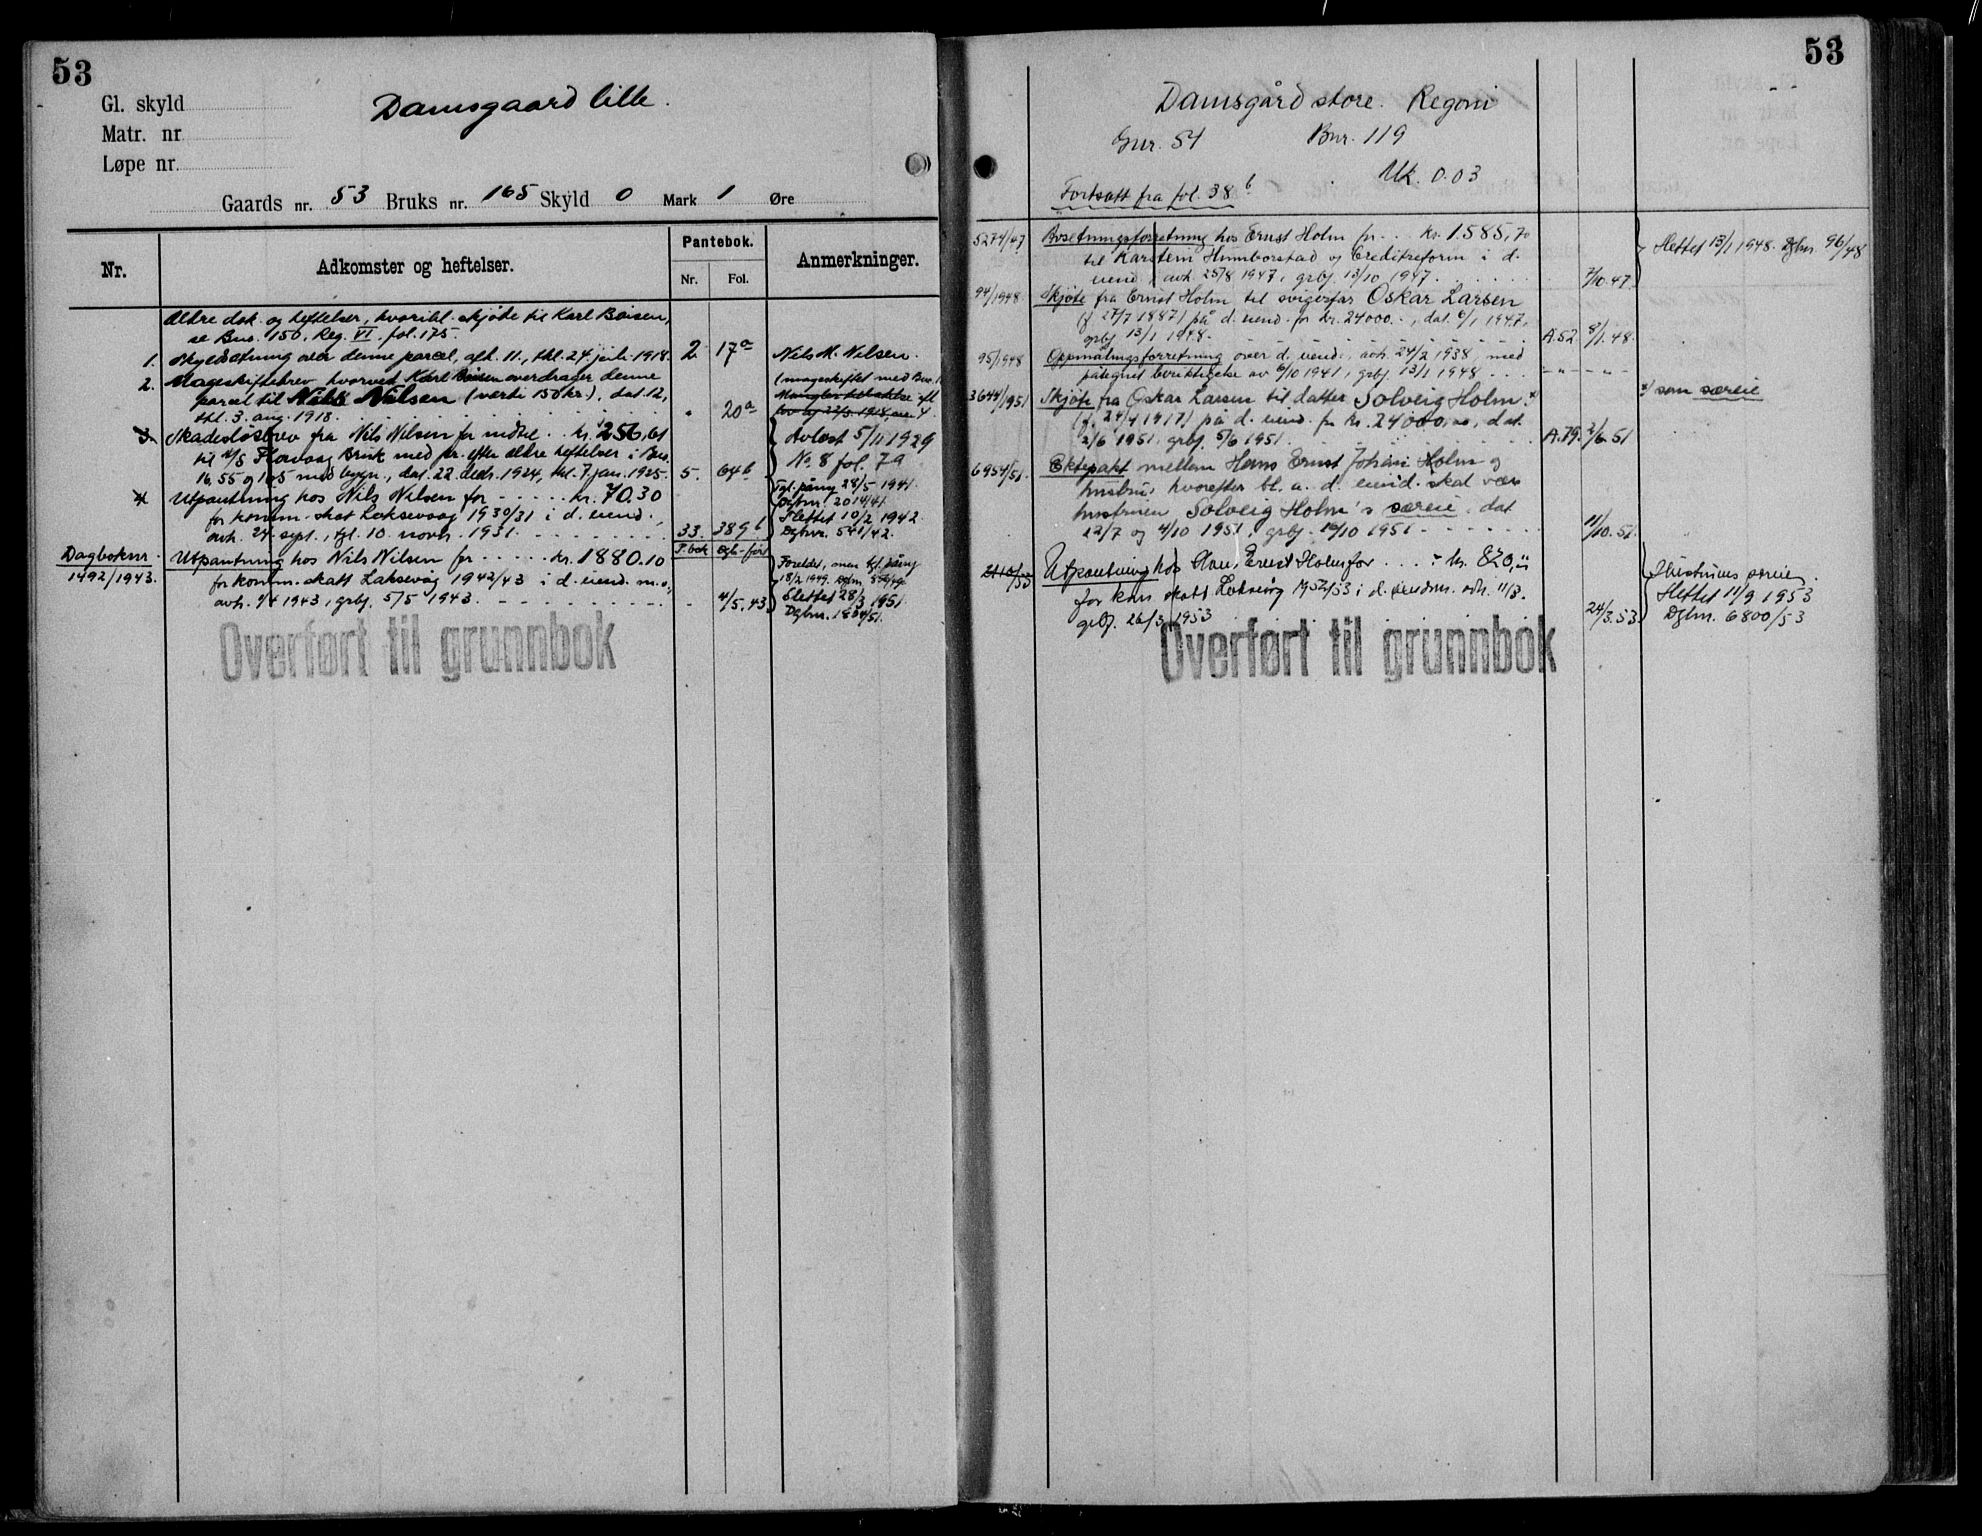 53
Gl. skyld
Matr. nr
Løpe nr.
Damsgaard lille.
Gaards nr. 53 Bruks nr. 165 Skyld 0 Mark 1 Øre
Nr.
Adkomster og heftelser.
Pantebok.
Nr. Fol.
Anmerkninger.
Ældre dok. og heftelser, hvoribl. skjøte til Karl Boisen,
se Bno. 150. Reg. VI. fol. 175.
1. Skyldsetning over denne parcel, afh. 11., thl. 24. juli 1918. 2 17a Nils M. Nilsen.
2. Mageskiftebrev hvorved Karl Boisen overdrager denne
parcel til Nils Nilsen (værdi 150 kr), dat. 12,
thl. 3. aug. 1918. " 20a
(mageskiftet med Bno.
3. Skadesløsbrev fra Nils Nilsen for indtil kr. 256,61
til A/S Florvaag Bruk med pr. efter ældre heftelser i Bno.
16, 55 og 165 med bygn., dat. 22. decbr. 1924, thl. 7. jan. 1925. 5. 64b
Avlæst 5/11 1929
No. 8 fol. 79
4 Utpantning hos Nils Nilsen for kr. 70.30
for komm. skat Laksevaag 1930/31 i d. eiend.,
avh. 24. sept., tgl. 10. novbr. 1931. 33. 389b
Tgl. påny 28/5 1941.
Dgbnr. 2014/41.
Slettet 10/2 1942.
Dgbnr. 541/42.
P.bok Dgb-ført
Dagboknr.
1492/1943.
Utpantning hos Nils Nilsen for kr. 1880.10
for komm. skatt Laksevåg 1942/43 i d. eiend. m.o.,
avh. 1943, grbf. 5/5 1943. 4/5.43.
Foreldet, men tgl. påny
18/2 1949. Dgbnr.
Slettet 28/3 1951.
Dgbnr. 1804/51.
Overført til grunnbok
53
Damsgård store. Regoni
Gnr. 54 Bnr. 119
Mk. 0.03
Fortsatt fra fol. 38b
5274/47 Utsetningsforretning hos Ernst Holm for kr. 1.585,70
til Karstein Humborstad og Creditreform i d.
eiend., avh. 25/8 1947, grbf. 13/10 1947. 7/10.47.
Slettet 13/1 1948. Dgbnr. 96/48
94/1948. Skjøte fra Ernst Holm til svigerfar Oskar Larsen
(f. 27/7 1887) på d. eiend. for kr. 24000.-, dat. 6/1 1947,
grbf. 13/1 1948. A.52 8/1.48.
95/1948 Oppmålingsforretning over d. eiend., avh. 24/2 1938, med
påtegnet beriktigelse av 6/10 1941, grbf. 13/1 1948
3644/1951 Skjøte fra Oskar Larsen til datter Solveig Holm x)
(f. 24/4 1917) på d. eiend. for kr. 24000,00, dat.
2/6 1951, grbf. 5/6 1951. A.79. 2/6.51
x) som særeie
6954/51. Ektepakt mellem Hans Ernst Johan Holm og
hustru, hvorefter bl. a. d. eiend. skal være
hustruen Solveig Holm's særeie, dat.
12/7 og 4/10 1951, grbf. 16/10 1951 11/10.51.
2110/53 Utpantning hos Hans Ernst Holm for kr. 820,00
for kom. skatt Laksevåg 1952/53 i d. eiendm. avh. 11/3.
grbf. 26/3 1953 24/3.53
Hustruens særeie.
Slettet 11/9 1953
Dgbnr. 6800/53
Overført til grunnbok